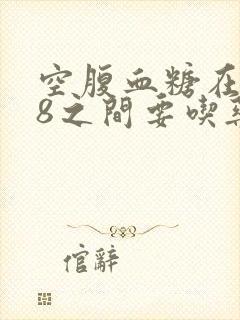 空腹血糖在
8之間要喫
倌辭